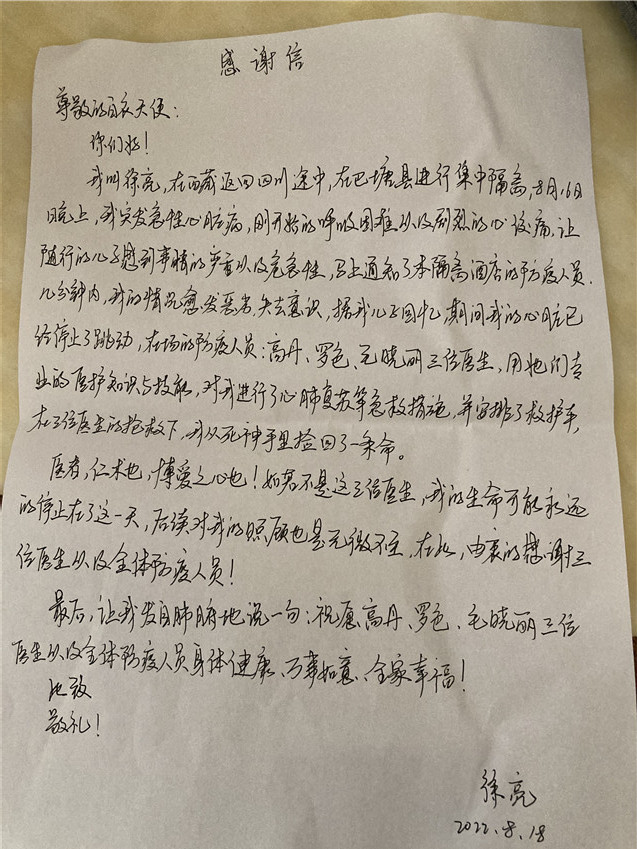 感谢信
尊敬的白衣天使：
你们好！
我叫徐亮，在西藏返回四川途中，在巴塘县进行集中隔离，8月16日
晚上，我突发急性心脏病，刚开始的呼吸困难以及剧烈的心绞痛，让
随行的儿子感到事情的严重以及危急性，马上通知了本隔离酒店的防疫人员.
几分钟内，我的情况愈发恶劣，失去意识，据我儿子回忆，期间我的心脏已
经停止了跳动，在场的防疫人员：高丹、罗色、毛晓丽三位医生，用她们专
业的医护知识与技能，对我进行了心肺复苏等急救措施，并安排了救护车，
在三位医生的抢救下，我从死神手里捡回了一条命。
医者，仁术也，博爱之心也！如若不是这三位医生，我的生命可能永远
的停止在了这一天，后续对我的照顾也是无微不至，在此，由衷的感谢三
位医生以及全体防疫人员！
最后，让我发自肺腑地说一句：祝愿高丹、罗色、毛晓丽三位
医生以及全体防疫人员身体健康、万事如意、全家幸福！
此致
敬礼！
徐亮
2022.8.18